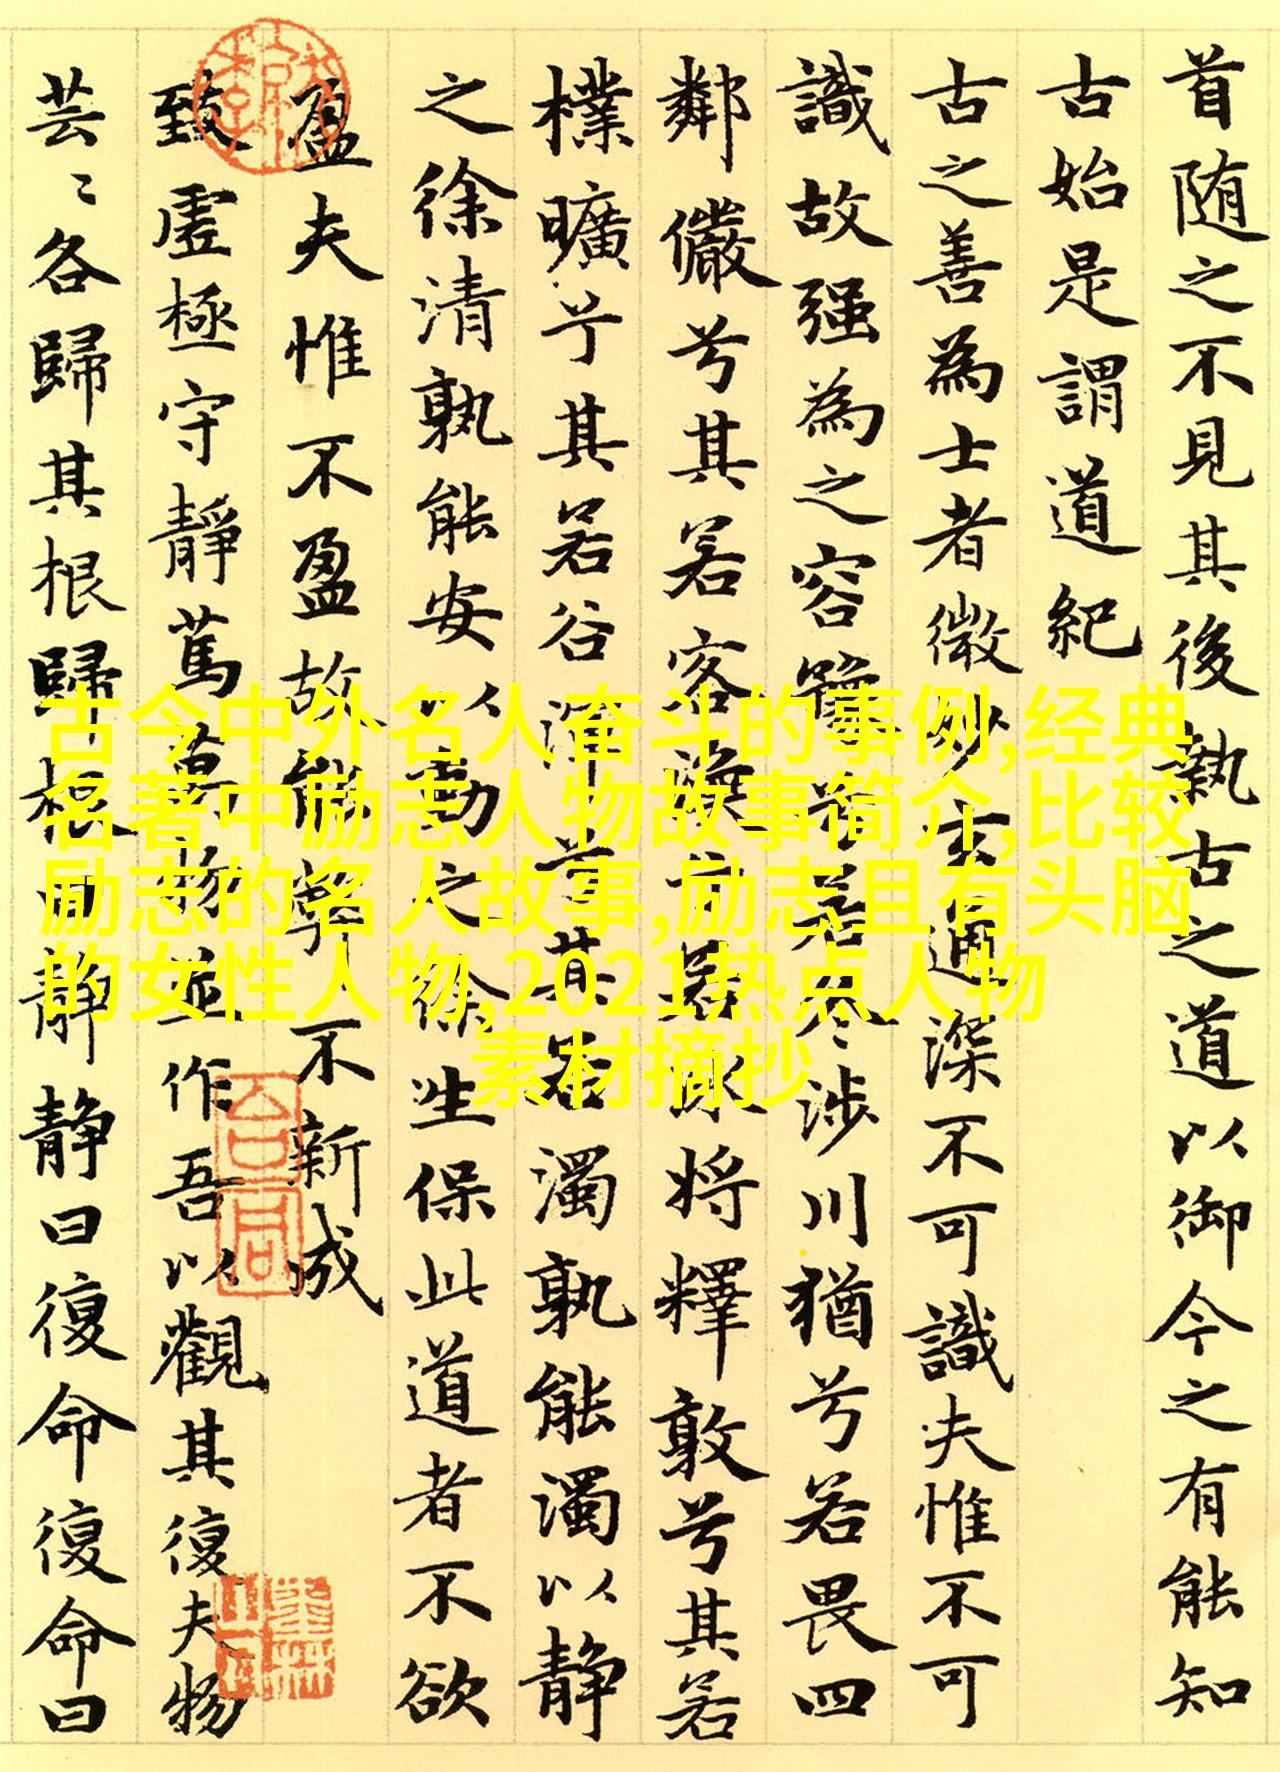 首随之不見其後執古之道以御今之有能知
古始是謂道紀
古之善為士者微妙玄通深不可識夫惟不可
識故强為之容豫兮若冬涉川猶兮若畏四
鄰儼兮其若客渙兮若冰將釋敦兮其若
樸曠兮其若谷渾兮其若濁孰能濁以静
之徐清孰能安以動之徐生保此道者不欲
盈夫惟不盈故能弊不新成
致虛極守靜篤萬物並作吾以觀其復夫物
芸〻各歸其根歸根曰静静曰復命復命曰
古今中外名人奋斗的事例,经典
名著中励志人物故事简介,比较
励志的名人故事,励志且有头脑
的女性人物,2021热点人物
素材摘抄